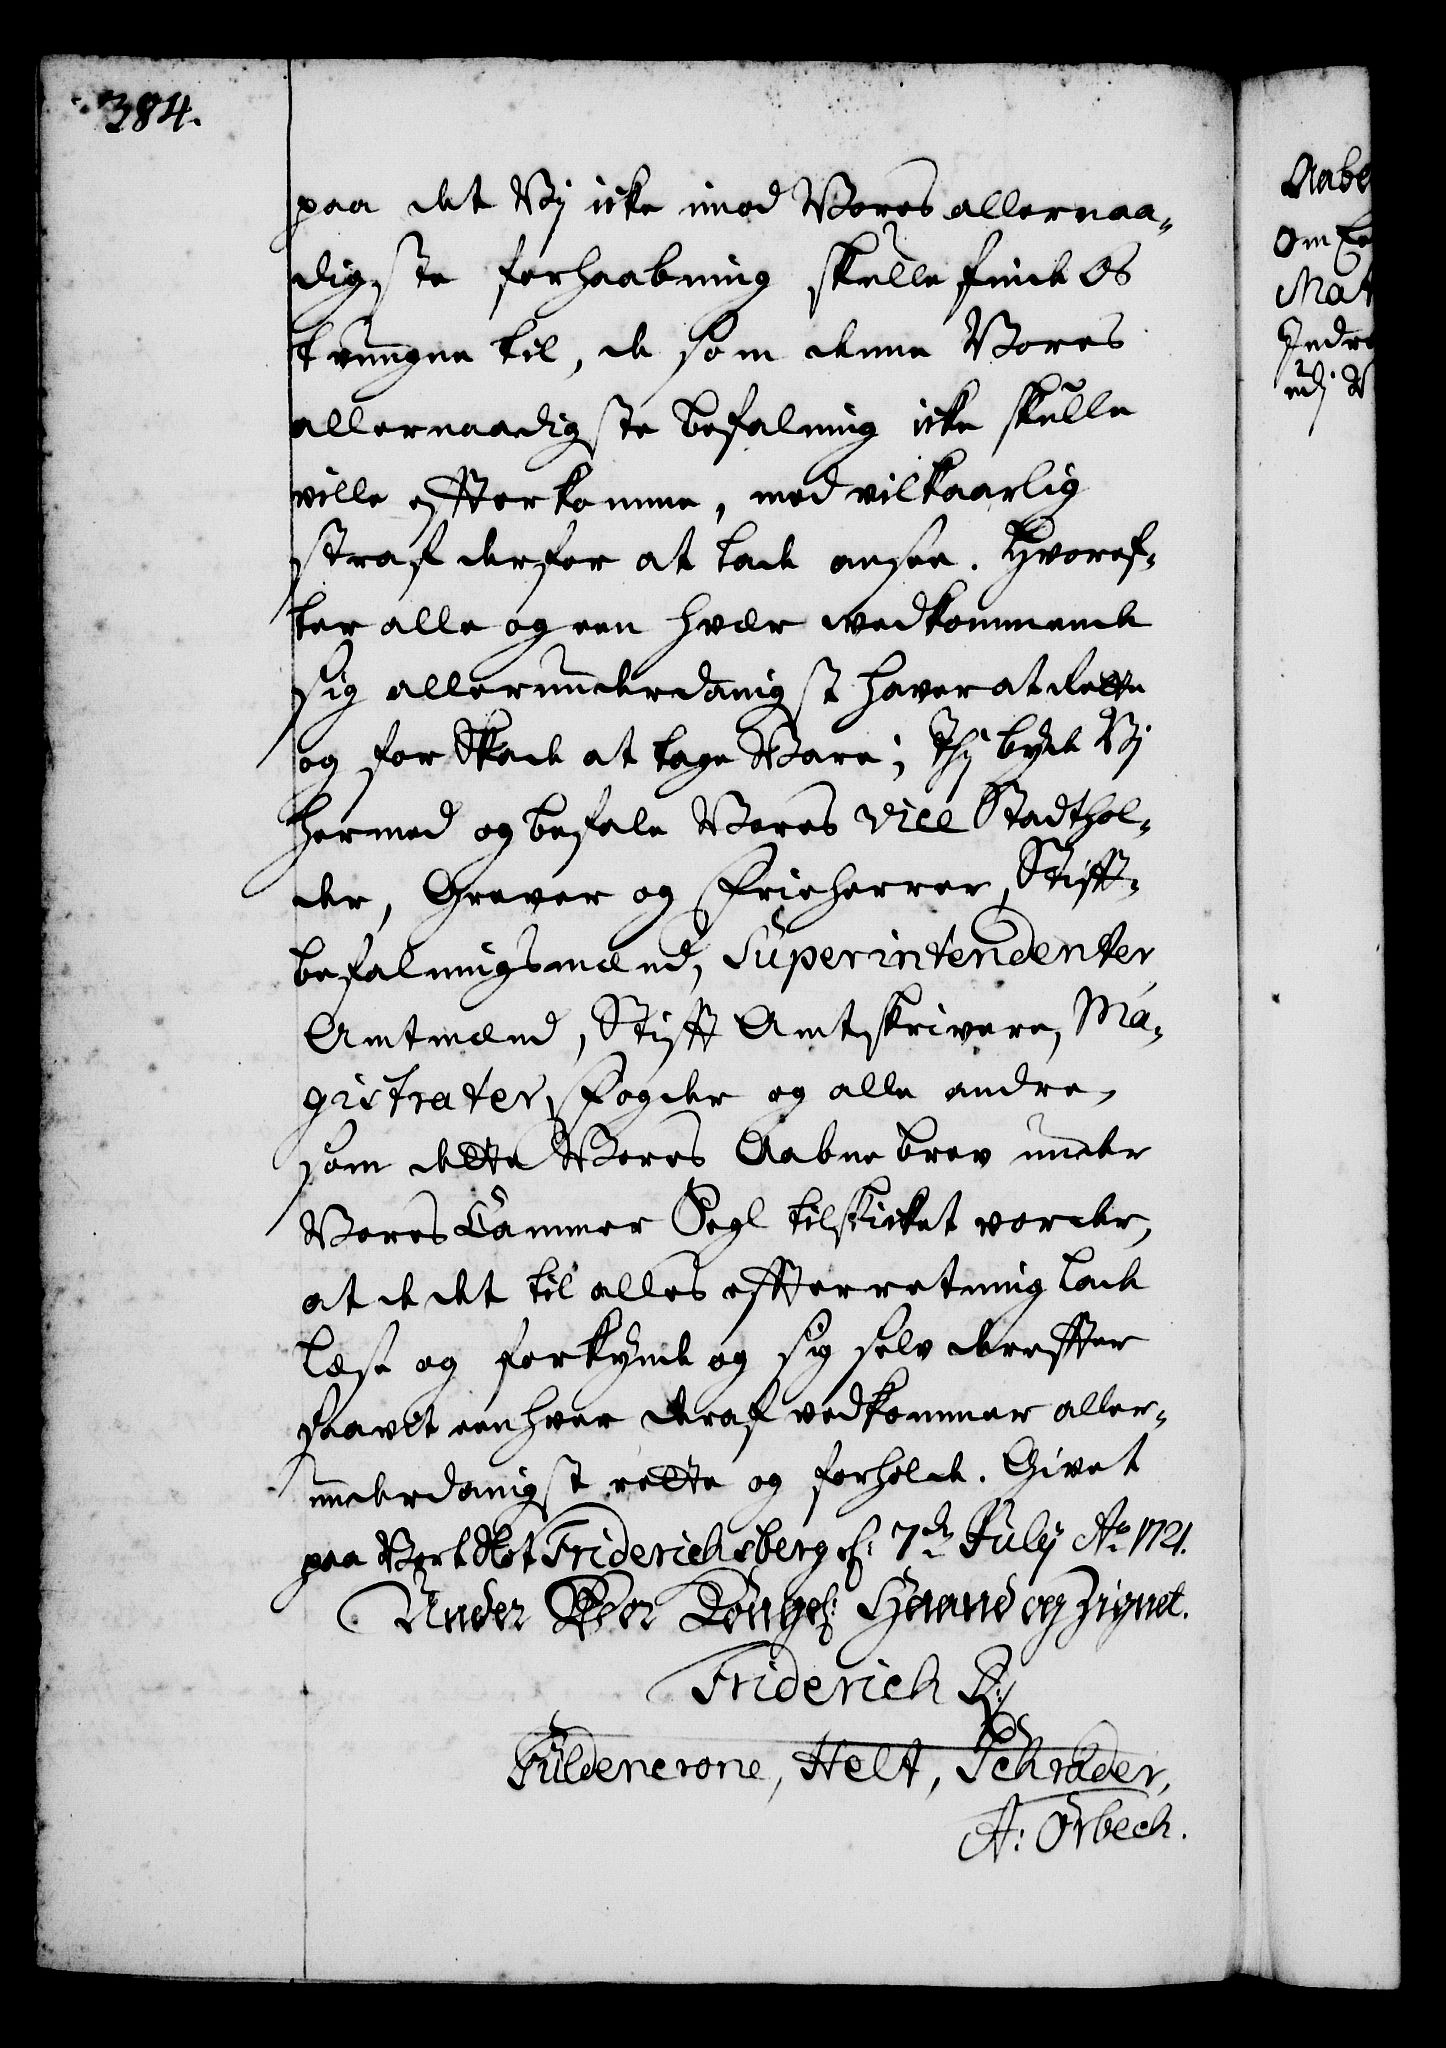 384.
paa det Vj icke imod Vores allernaa-
digste forhaabning skulle finde Os
tvungne til, de som denne Vores
allernaadigste befalning icke skulle
ville efterkomme, med vilkaarlig
straf derfor at lade ansee. Hvoref-
ter alle og een hvær wedkommende
sig allerunderdanigst haver at rette
og for Skade at tage Vare; Thj byde Vj
hermed og befale Vores Vice Stadthol-
der, Grever og Frieherrer, Stift-
befalningsmænd, Superintendenter,
Amtmænd, Stift Amtskrivere, Ma-
gistrater, Fogder og alle andre,
som dette Vores Aabne brev under
Vores Cammer Segl tilskicket vorder,
at de det til alles efterretning lade
læse og forkynde og sig selv derefter
saavit een hver deraf vedkommer aller-
underdanigst rette og forholde. Givet
paa Vort Slot Friderichsberg d: 7de July Ao 1721.
Under Vor Kongel: Haand og Zignet.
Friderich R:
Güldencrone, Helt, Schrader,
A: Örbech.
Aabe
Om
Mat
Jndre
udj V